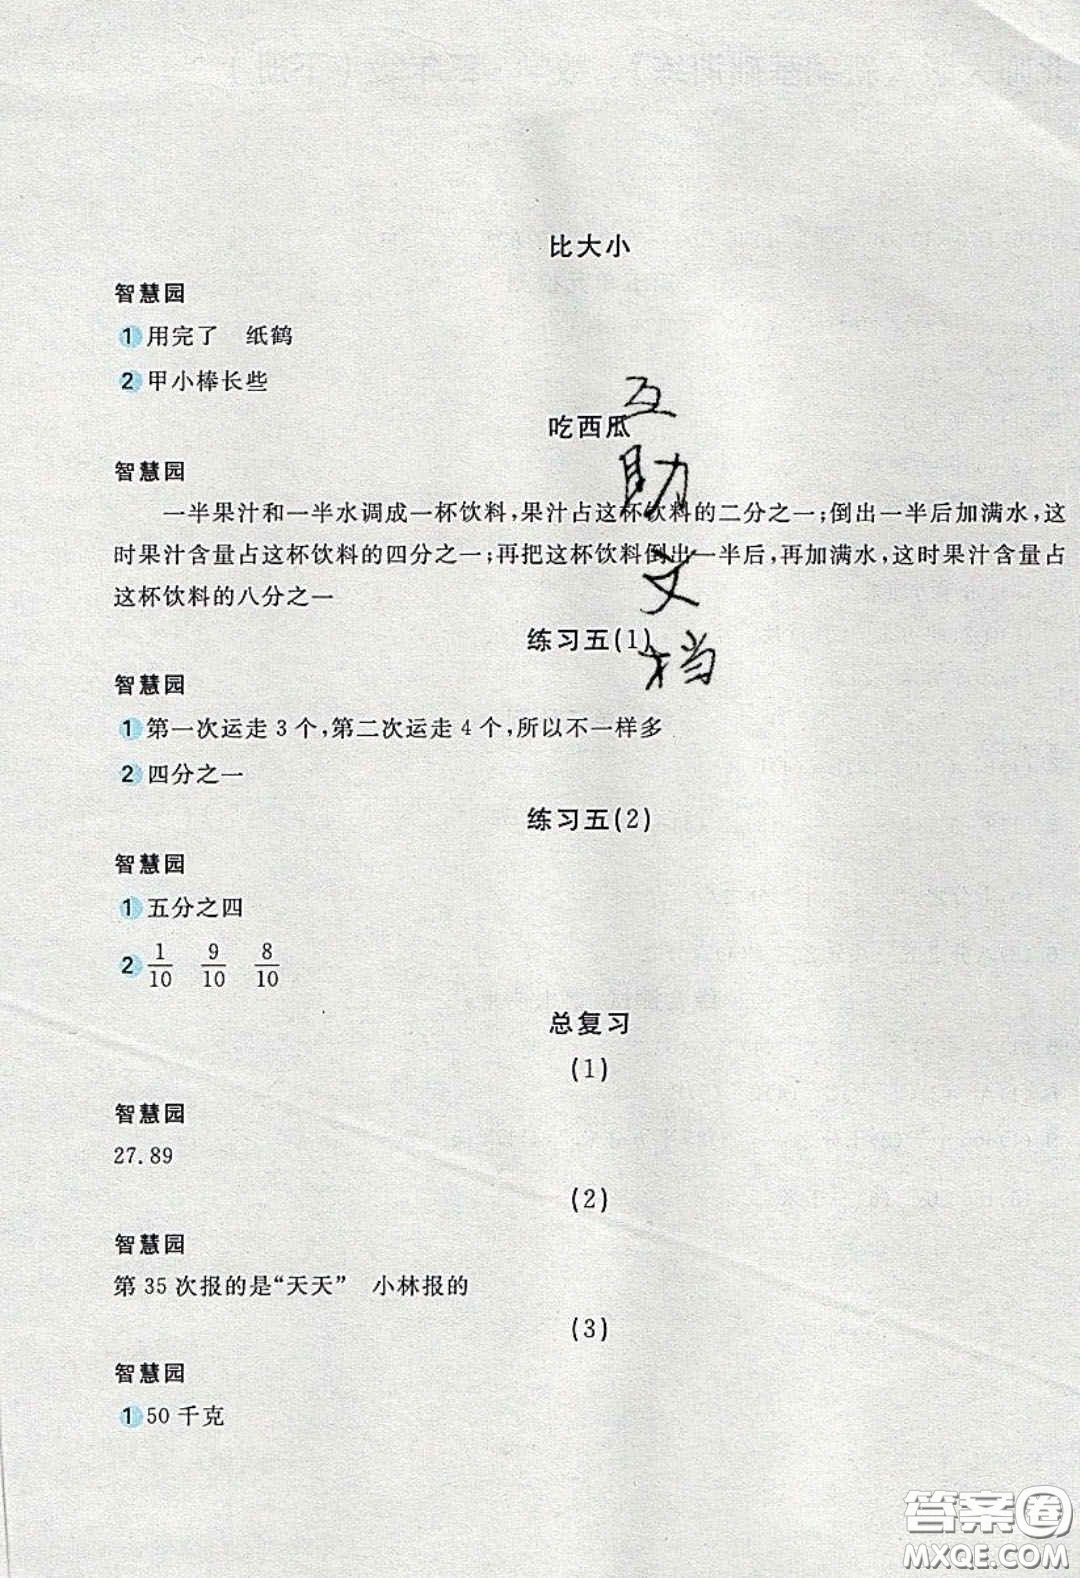 比大小
智慧园
1 用完了 纸鹤
2 甲小棒长些
吃西瓜
智慧园
一半果汁和一半水调成一杯饮料,果汁占这杯饮料的二分之一;倒出一半后加满水,这
时果汁含量占这杯饮料的四分之一;再把这杯饮料倒出一半后,再加满水,这时果汁含量占
这杯饮料的八分之一
练习五(1)
智慧园
1 第一次运走 3 个,第二次运走 4 个,所以不一样多
2 四分之一
练习五(2)
智慧园
1 五分之四
2 1/10 9/10 8/10
总复习
(1)
智慧园
27.89
(2)
智慧园
第 35 次报的是“天天” 小林报的
(3)
智慧园
1 50 千克
互
助
文
档
答案卷
MXQE.COM